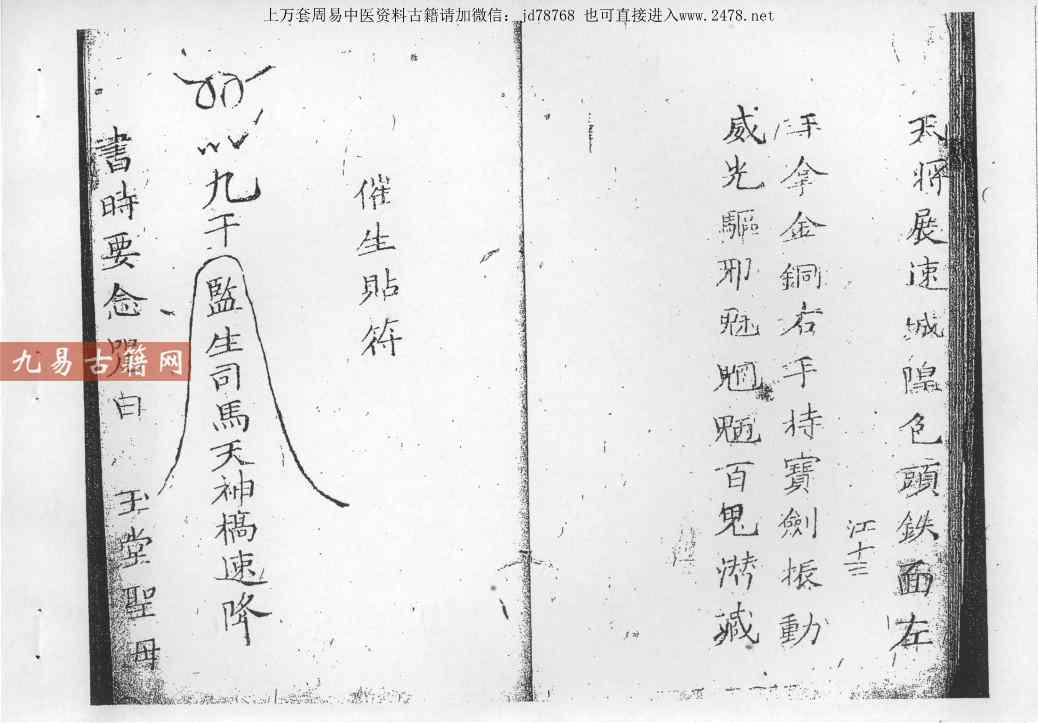 上万套周易中医资料古籍请加微信：jd78768 也可直接进入www.2478.net
天将展速城隍色頭鉄面左
手拿金銅右手持寶劍振動
威光驅邪百鬼潜藏
江十三
催生貼符
九千
監生司馬天神槁速降
書時要念咒白 玉堂聖母
九易古籍网